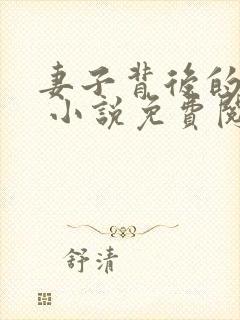 妻子背後的
小說免費閱
舒清